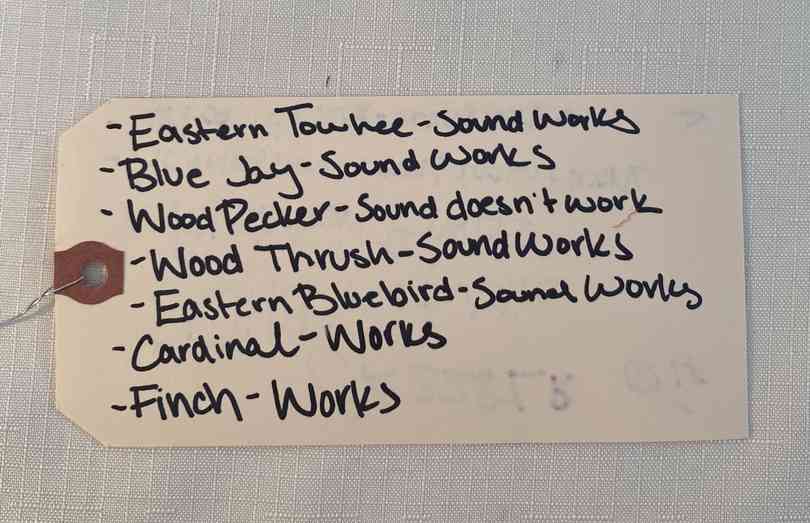 - Eastern Towhee - Sound works
- Blue Jay - Sound works
- WoodPecker - Sound doesn't work
- Wood Thrush - Sound Works
- Eastern Bluebird - Sound Works
- Cardinal - Works
- Finch - Works